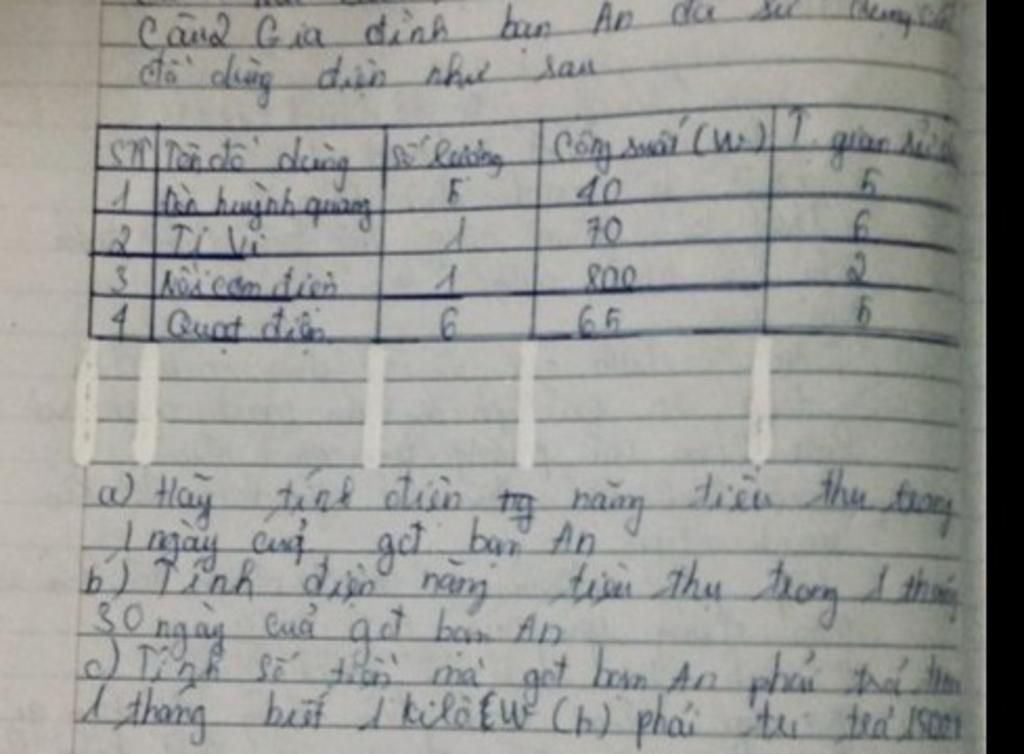 Câu2 Gia đình bạn An đã sử dụng
đồ dùng điện như sau
STT Tên đồ dùng Số lượng Công suất (W) T. gian sử
1 Đèn huỳnh quang 5 40 5
2 Ti Vi 1 70 6
3 Nồi cơm điện 1 800 2
4 Quạt điện 6 65 5
a) Hãy tính điện năng tiêu thụ trong
1 ngày của gđ bạn An
b) Tính điện năng tiêu thụ trong 1 tháng
30 ngày của gđ bạn An
c) Tính số tiền mà gđ bạn An phải trả
1 tháng biết 1 kilô W (h) phải trả